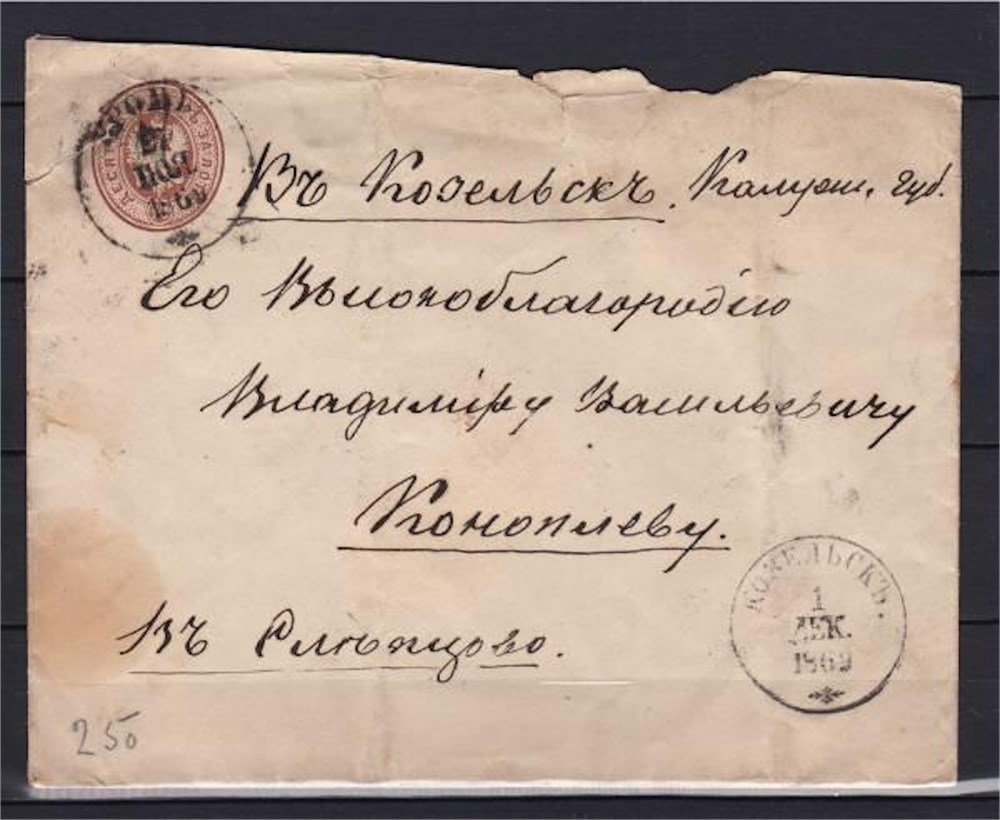 27
НОЯ
Въ Козельскъ. Калужс. губ.
Его Высокоблагородію
Владиміру Васильевичу
Коноплеву.
Въ
КОЗЕЛЬСКЪ.
1
ДЕК.
1869
250